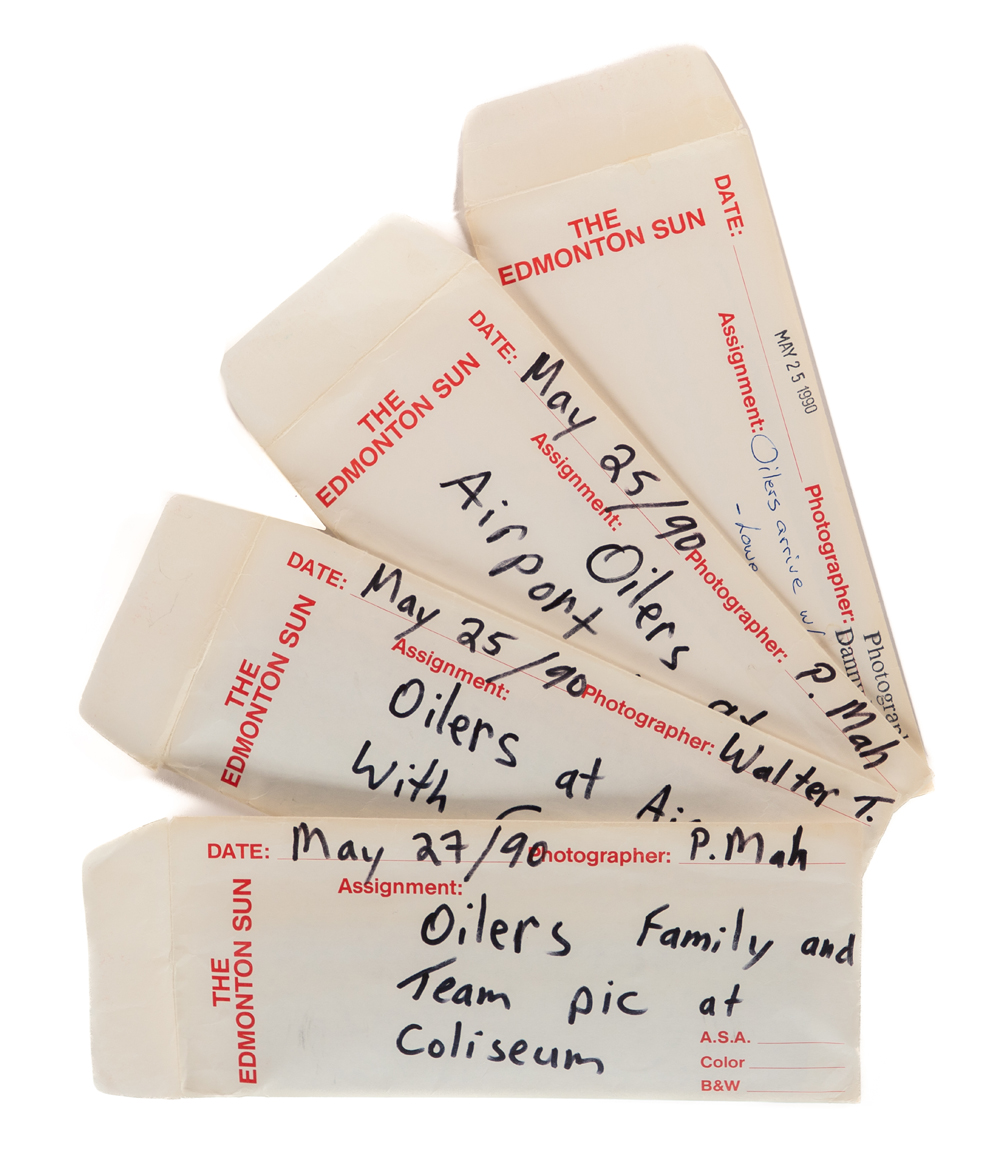 THE
EDMONTON SUN
DATE:
MAY 25 1990
Photographer:
Photogra
Assignment:
Oilers arrive w/
- Lowe
THE
EDMONTON SUN
DATE: May 25/90 Photographer: P. Mah
Assignment:
Oilers at
Airport
THE
EDMONTON SUN
DATE: May 25/90 Photographer: Walter T.
Assignment:
Oilers at
With
THE
EDMONTON SUN
DATE: May 27/90 Photographer: P. Mah
Assignment:
Oilers Family and
Team pic at
Coliseum
A.S.A.
Color
B&W